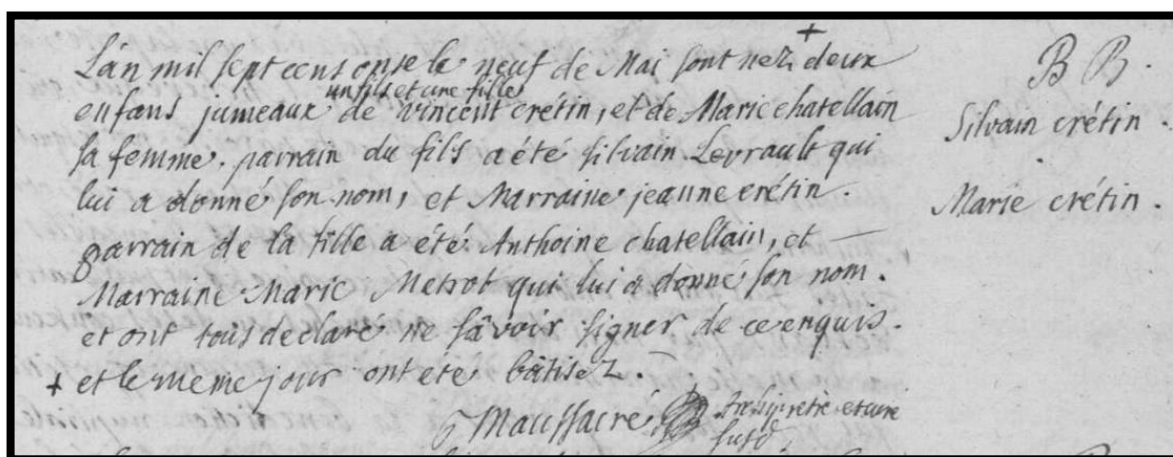 L'an mil sept cens onse le neuf de Mai sont nez + deux
enfans jumeaux un fils et une fille de vincent crétin, et de Marie chatellain
sa femme. parrain du fils a été silvain Levrault qui
lui a donné son nom, et Marraine jeanne crétin.
parrain de la fille a été Anthoine chatellain, et —
Marraine Marie Metrot qui lui a donné son nom.
et ont tous declaré ne sâvoir signer de ce enquis.
+ et le meme jour ont été bâtisez.
Maussacré
B B.
Silvain crétin.
Marie crétin.